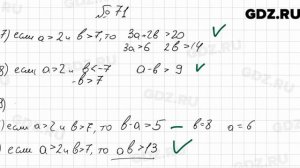 GDZ.RU
№ 71
7) если a>2 и b>7, то 3a+2b>20 ✓
3a>6 2b>14
8) если a>2 и b<-7 a-b>9 ✓
-b>7
) если a>2 и b>7, то b-a>5 — b=8 a=6
) если a>2 и b>7, то ab>13 ✓
GDZ.RU